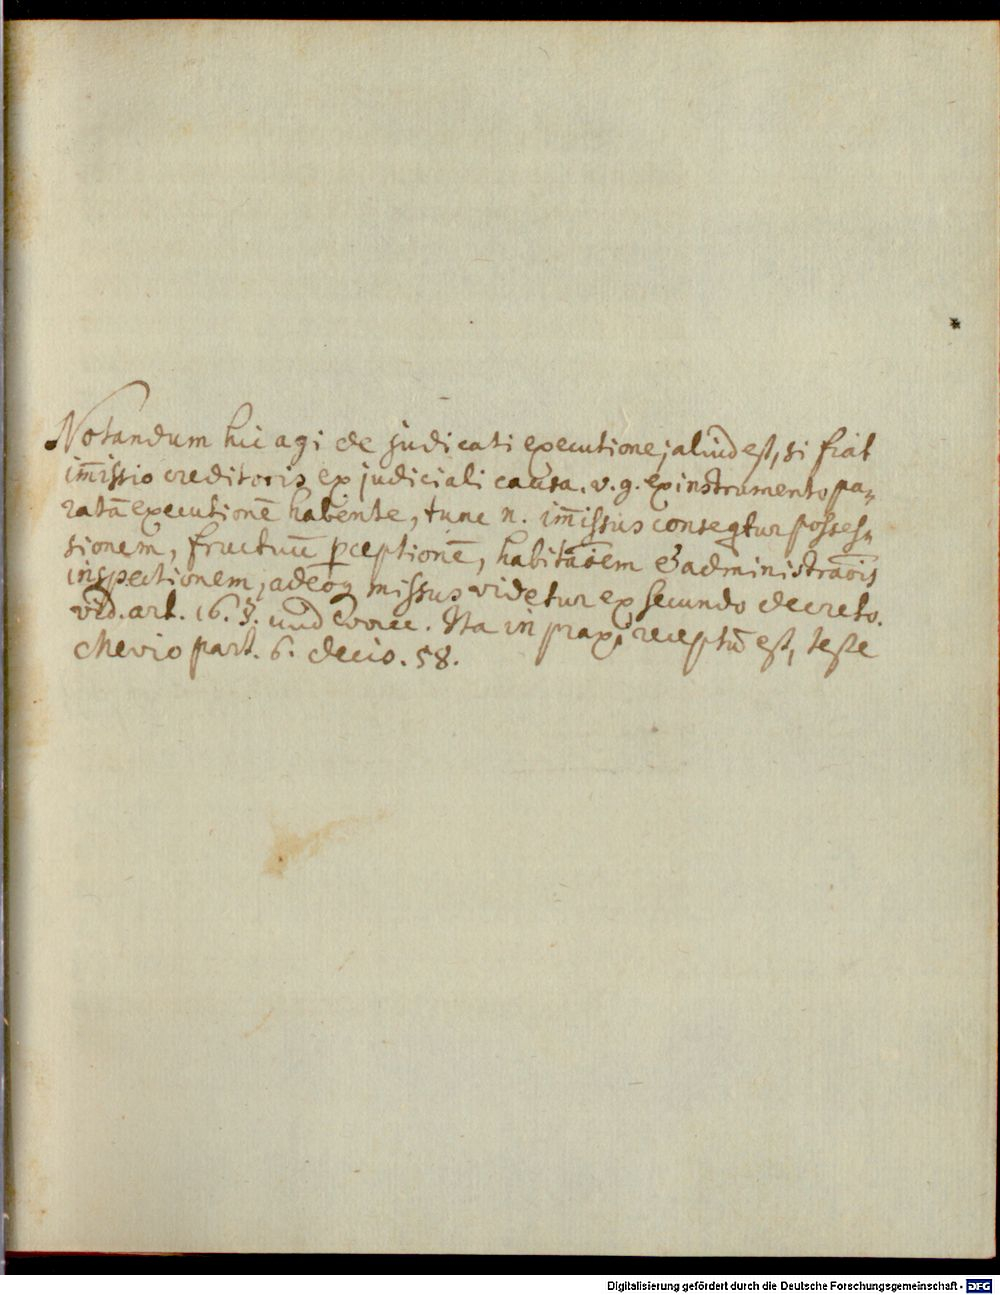 Notandum hic agi de judicati executione; aliud est, si fiat
im̄issio creditoris ex judiciali causa. v. g. ex instrumento pa„
ratā executionē habente, tunc n. im̄issus conseq̄tur posses„
sionem, fructuū p̄ceptionē, habitāōem & administraōīs
inspectionem, adeoq̨ missus videtur ex secundo decreto.
vid. art. 16. §. und Wo ec. Ita in praxi receptū est, teste
Mevio part. 6. decis. 58.
*
Digitalisierung gefördert durch die Deutsche Forschungsgemeinschaft - DFG